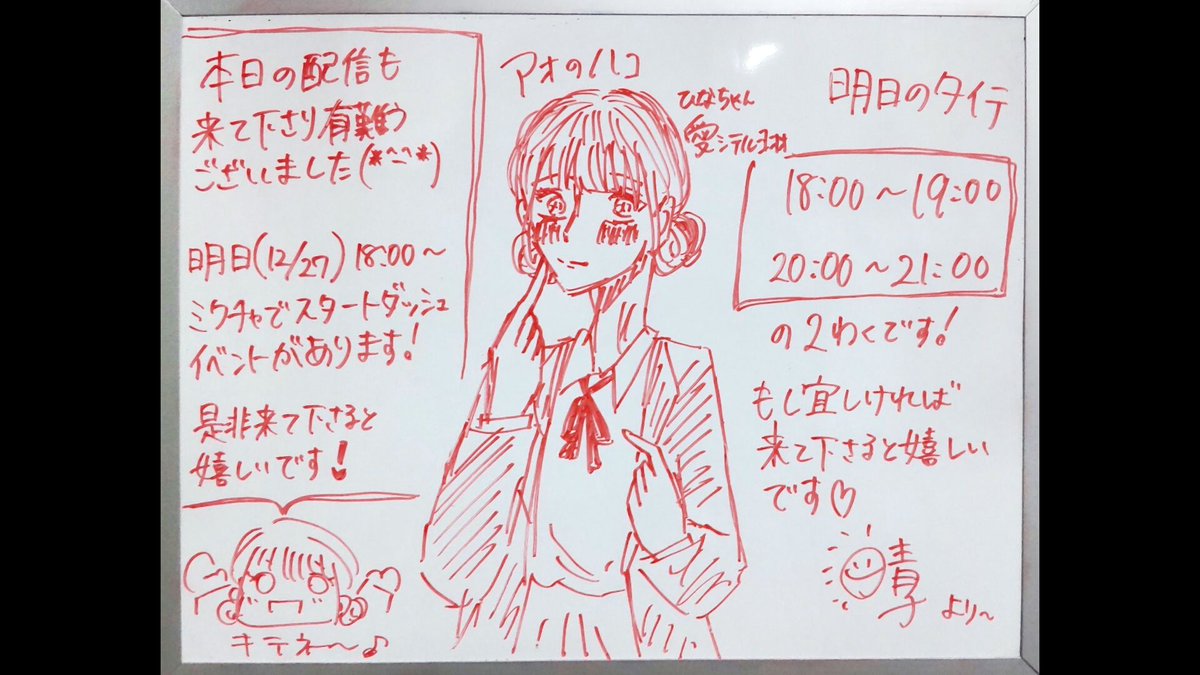 本日の配信も
来て下さり有難う
ございました(*^-^*)
明日(12/27) 18:00～
ミクチャでスタートダッシュ
イベントがあります!
是非来て下さると
嬉しいです!
キテネ～♪
アオのハコ
ひなちゃん
愛シテル
明日のタイテ
18:00～19:00
20:00～21:00
の2わくです!
もし宜しければ
来て下さると嬉しい
です♡
晴子 より～